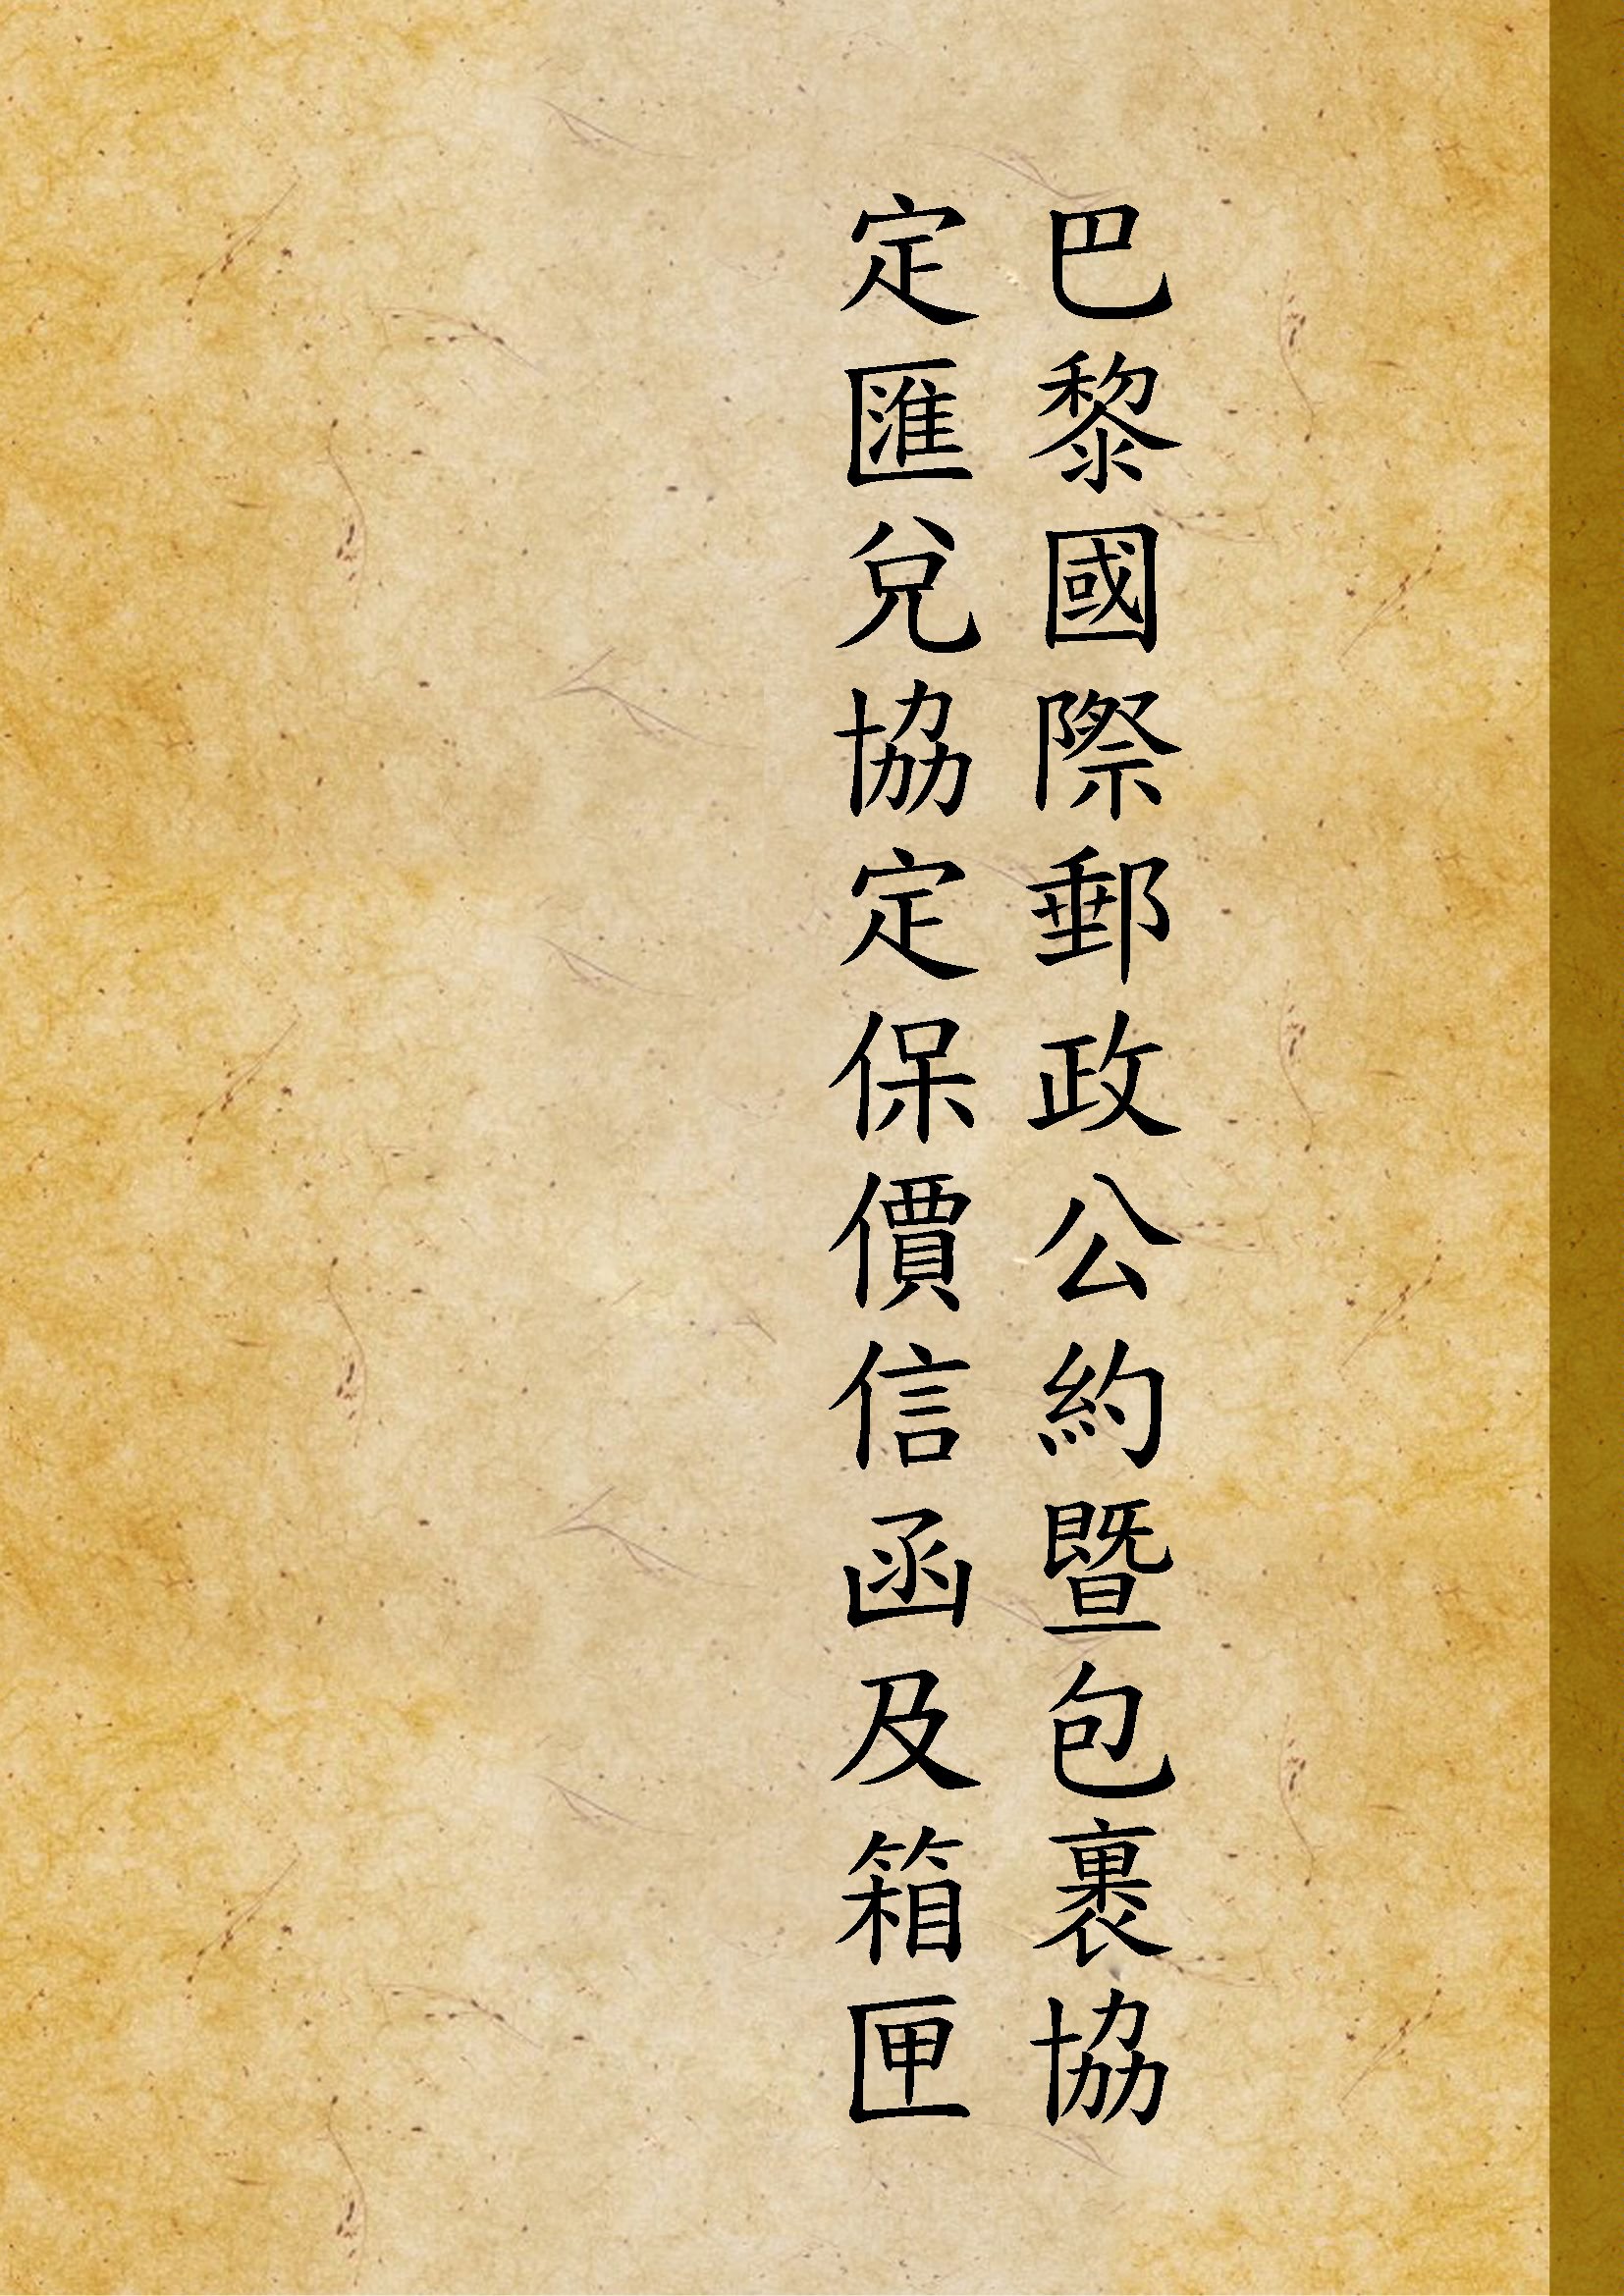 巴黎國際郵政公約暨包裹協
定匯兌協定保價信函及箱匣